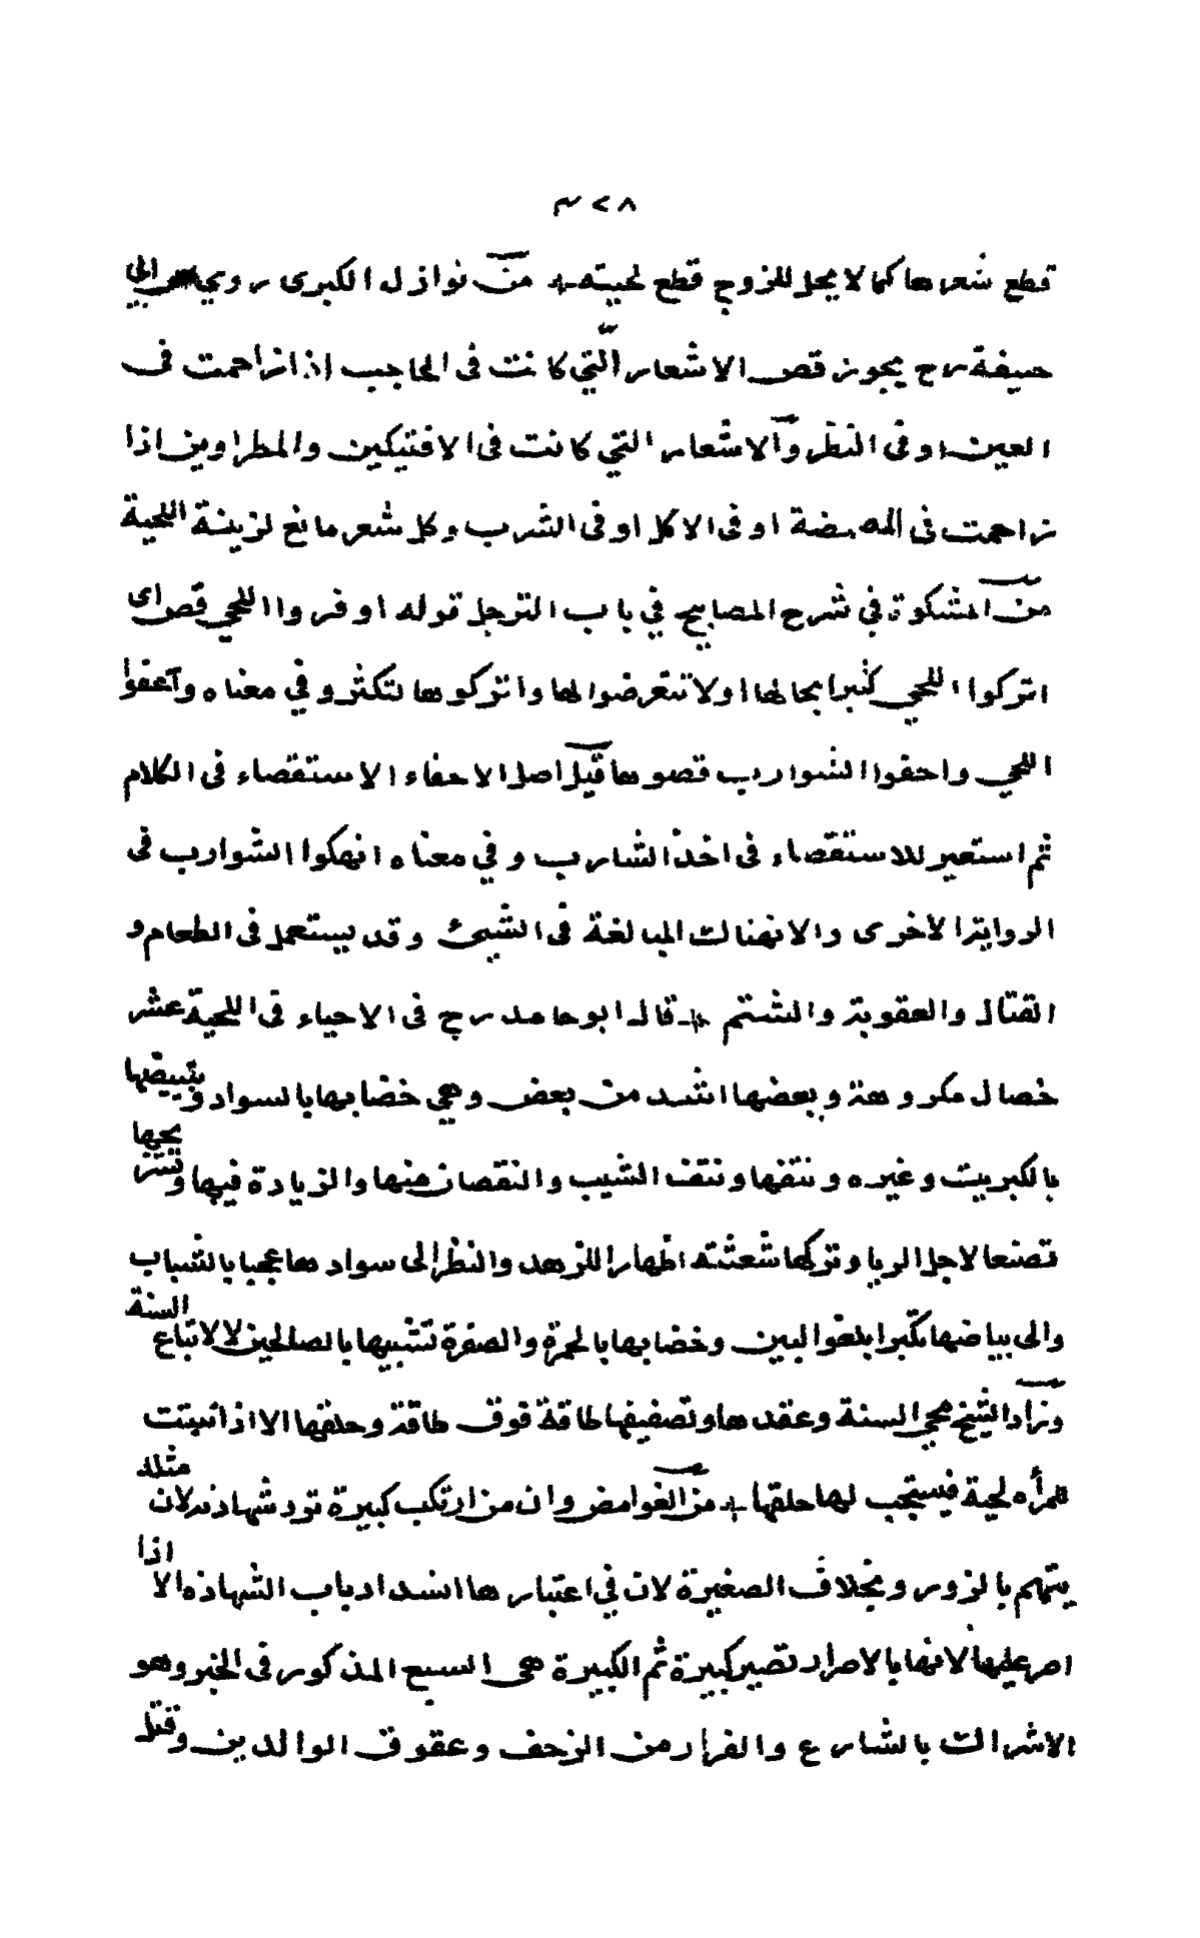 ٣٢٨
قطع شعرها كما لا يحل للزوج قطع لحيته من نوازل الكبرى روى عن ابى
حنيفة رح يجوز قص الاشعار التى كانت فى الحاجب اذا زاحمت فى
العين او فى النظر والاشعار التى كانت فى الافنيكين والمطراوين اذا
زاحمت فى المضمضة او فى الاكل او فى الشرب وكل شعر مانع لزينة اللحية
من المشكوة فى شرح المصابيح فى باب الترجل قوله اوفروا اللحى قص اى
اتركوا اللحى كثيرا بحالها ولا تتعرضوا لها واتركوها لتكثر وفى معناه واعفوا
اللحى واحفوا الشوارب قصوها قيل اصل الاحفاء الاستقصاء فى الكلام
ثم استعير للاستقصاء فى اخذ الشارب وفى معناه انهكوا الشوارب فى
الرواية الاخرى والانهاك المبالغة فى الشيئ وقد يستعمل فى الطعام و
القتال والعقوبة والشتم قال ابو حامد رح فى الاحياء فى اللحية عشر
خصال مكروهة وبعضها اشد من بعض وهى خضابها بالسواد وتبييضها
بالكبريت وغيره ونتفها ونتف الشيب والنقصان منها والزيادة فيها وتسريحها
تصنعا لاجل الريا وتركها شعثته اظهارا للزهد والنظر الى سوادها عجبا بالشباب
والى بياضها تكبرا بعلو السن وخضابها بالحمرة والصفرة تشبيها بالصالحين لا لاتباع السنة
وزاد الشيخ محى السنة وعقدها وتصفيفها طاقة فوق طاقة وحلقها الا اذا نبتت
للمرأه لحية فيستحب لها حلقها من الغوامض وان من ارتكب كبيرة ترد شهادته لان مثله
يتهم بالزور وبخلاف الصغيرة لان فى اعتبارها انسداد باب الشهادة الا اذا
اصر عليها لانها بالاصرار تصير كبيرة ثم الكبيرة هى السبع المذكور فى الخبر وهو
الاشراك بالشارع والفرار من الزحف وعقوق الوالدين وقتل